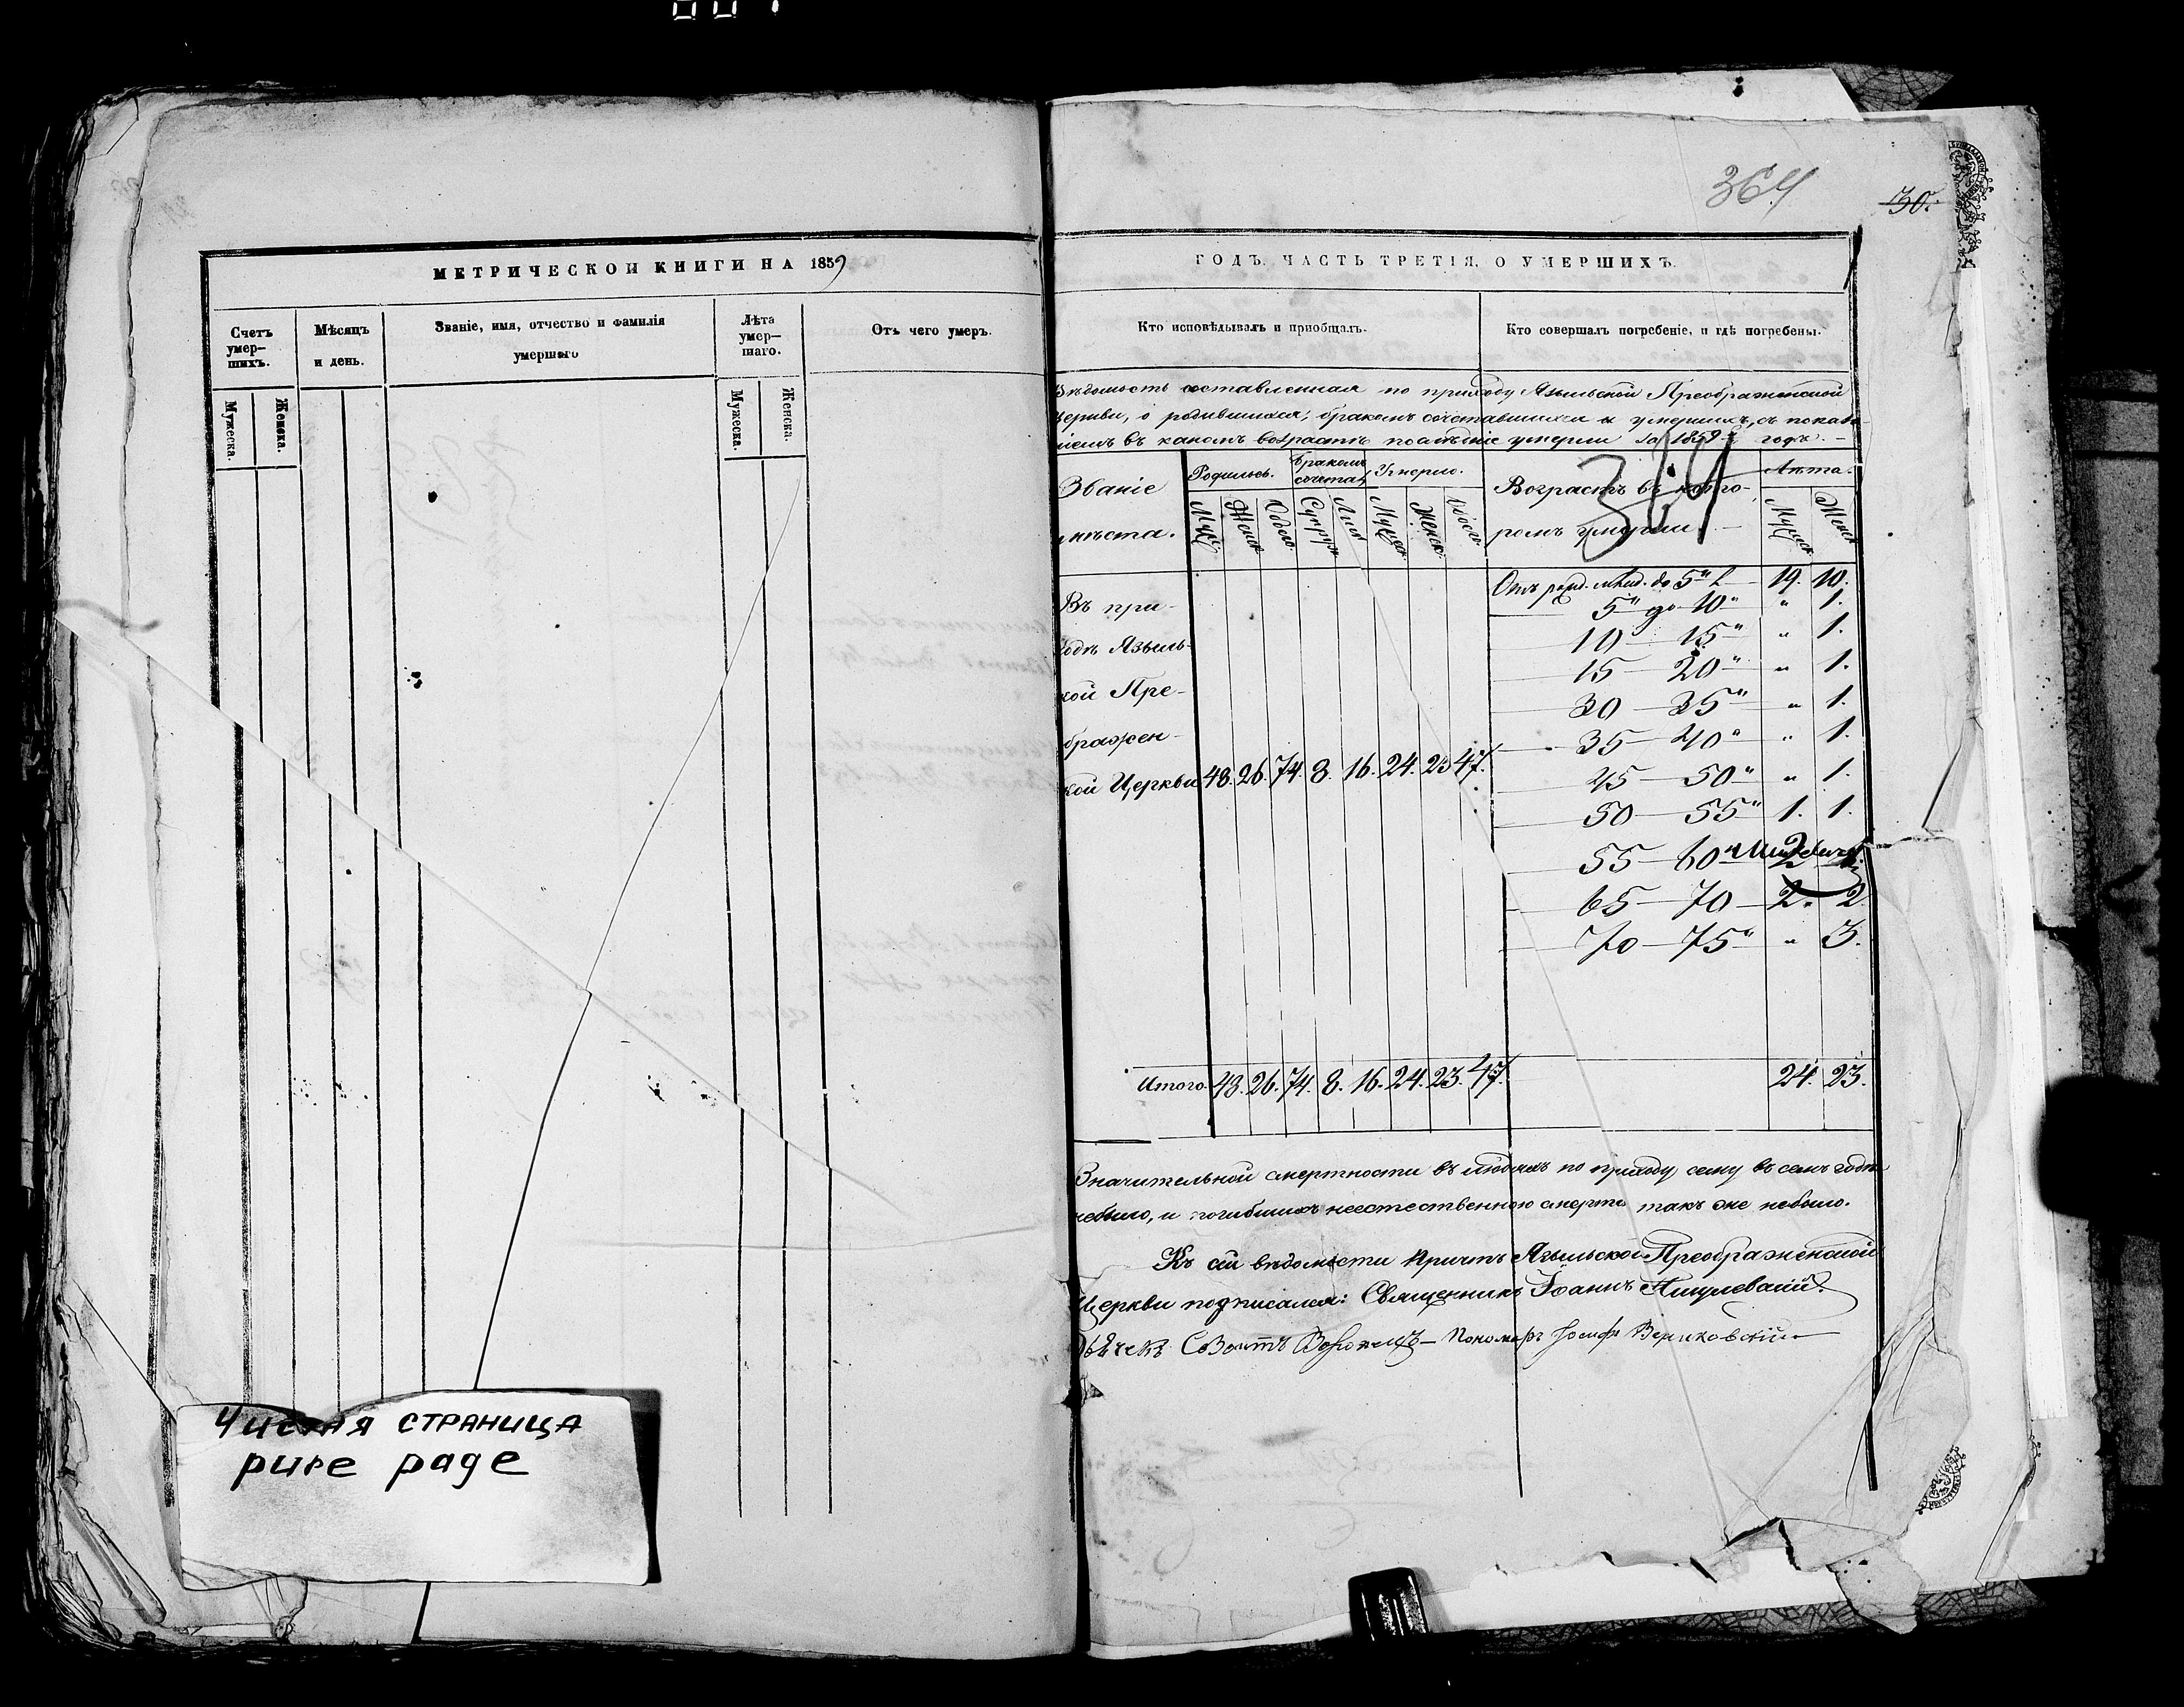 364
30.
МЕТРИЧЕСКОЙ КНИГИ НА 1859
Счетъ умер-
шихъ.
Мѣсяцъ
и день.
Званіе, имя, отчество и фамилія
умершаго
Лѣта
умер-
шаго.
Отъ чего умеръ.
Мужеска.
Женска.
Мужеска.
Женска.
Чистая страница
pure page
ГОДЪ. ЧАСТЬ ТРЕТІЯ, О УМЕРШИХЪ.
Кто исповѣдывалъ и пріобщалъ.
Кто совершалъ погребеніе, и гдѣ погребены.
Вѣдомость составленная по приходу Языльской Преображенской
церкви, о родившихся, бракомъ сочетавшихся и умершихъ, съ показа-
ніемъ въ какомъ возрастѣ послѣдніе умерли за 1859 годъ. —
Званіе
мѣста.
Родилось.
Бракомъ
сочета
Умерло.
Возрастъ въ кото-
ромъ умерли. —
Лѣта.
364
Муж
Женск
Обоего
Супруж
Лицъ
Мужеск
Женск
Обоего
Мужеск
Женск
Отъ рожд. млад. до 5" л — 19. 10.
5" до 10" " 1.
10 — 15" " 1.
15 — 20" " 1.
30 — 35" " 1.
35 — 40" " 1.
45 — 50" " 1.
50 — 55" 1. 1.
55 — 60" 2
65 — 70 — 2. 2.
70 — 75" " 3.
Въ при-
ходѣ Языль-
кой Пре-
ображен-
кой Церкви 48. 26. 74. 8. 16. 24. 23 47.
Итого. 48. 26. 74. 8. 16. 24. 23. 47. 24. 23.
Значительной смертности въ людяхъ по приходу сему въ семъ годѣ
небыло, и погибшихъ неестественною смертію такъ же небыло.
Къ сей вѣдомости Причтъ Языльской Преображенской
Церкви подписался: Священникъ Іоаннъ
Пономарь Іосифъ